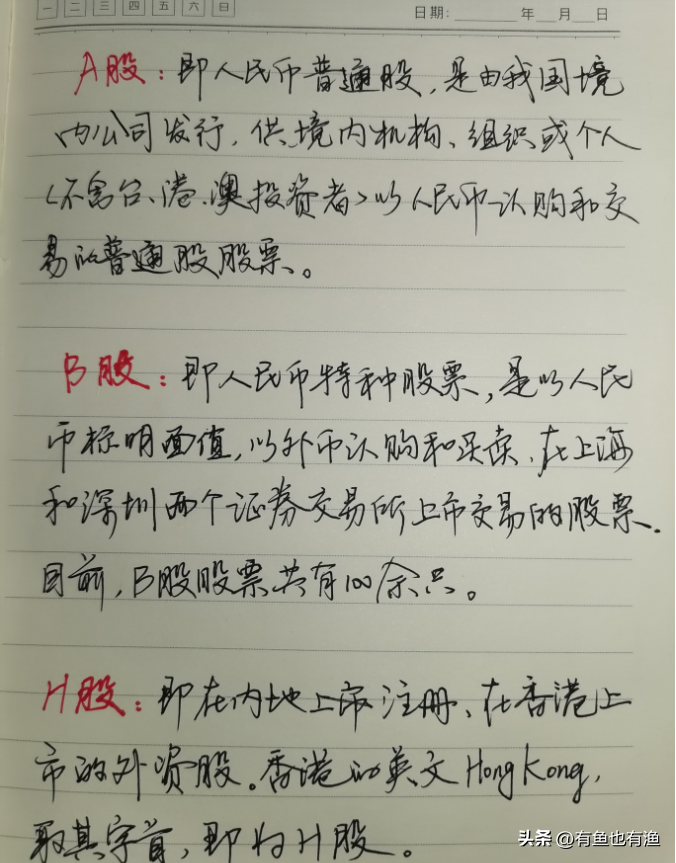 一 二 三 四 五 六 日 日期: ____ 年 __ 月 __ 日
A股：即人民币普通股，是由我国境
内公司发行，供境内机构、组织或个人
(不含台、港、澳投资者)以人民币认购和交
易的普通股股票。
B股：即人民币特种股票，是以人民
币标明面值，以外币认购和买卖，在上海
和深圳两个证券交易所上市交易的股票.
目前，B股股票共有100余只。
H股：即在内地上市注册、在香港上
市的外资股。香港的英文HongKong,
取其字首，即为H股。
头条 @有鱼也有渔